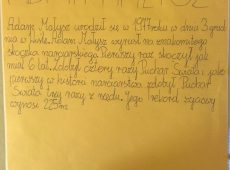 Adam Małysz urodził się w 1977 roku w dniu 3 grud
nia w Wiśle. Adam Małysz wyrósł na znakomitego
skoczka narciarskiego. Pierwszy raz skoczył jak
miał 6 lat. Zdobył cztery razy Puchar Świata i jako
pierwszy w historii narciarstwa zdobył Puchar
Świata trzy razy z rzędu. Jego rekord życiowy
wynosi 225m.